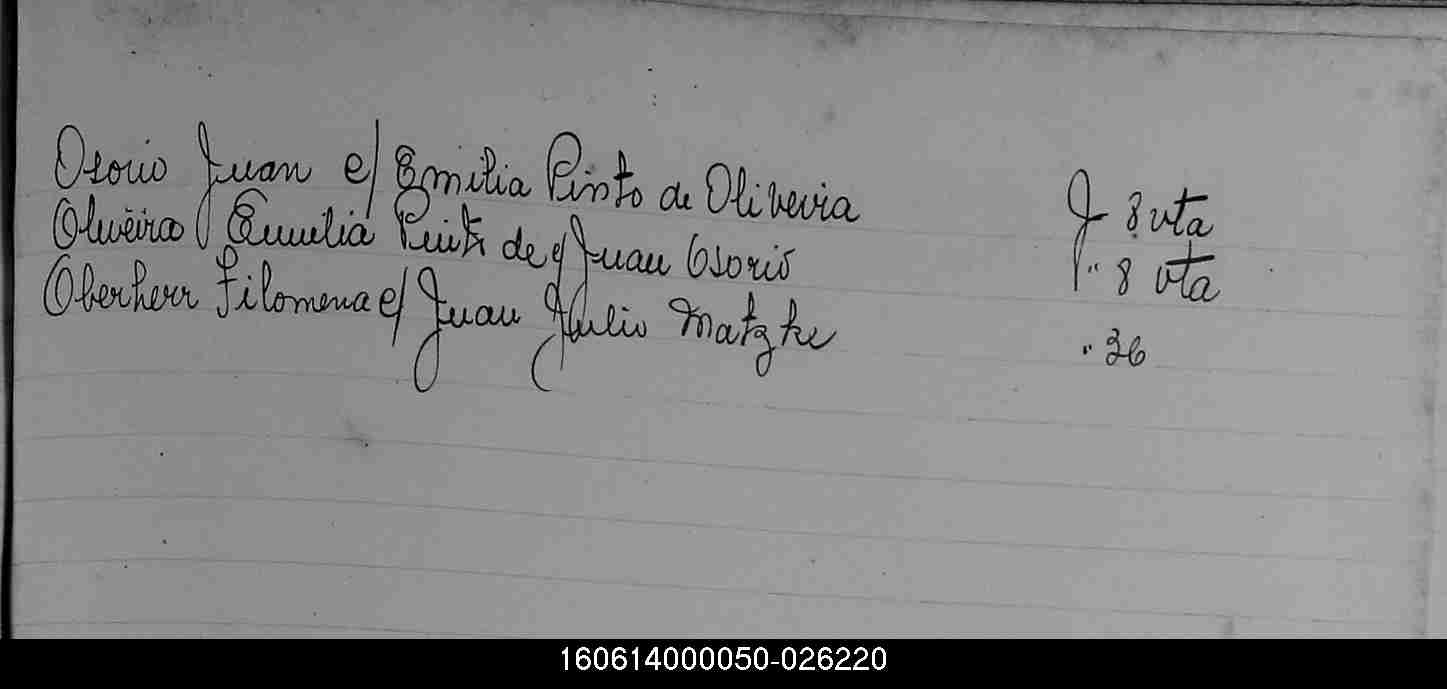 Osorio Juan c/ Emilia Pinto de Oliveira F 8 vta
Oliveira Emilia Pinto de c/ Juan Osorio " 8 vta
Oberherr Filomena c/ Juan Julio Matzke " 36
160614000050-026220